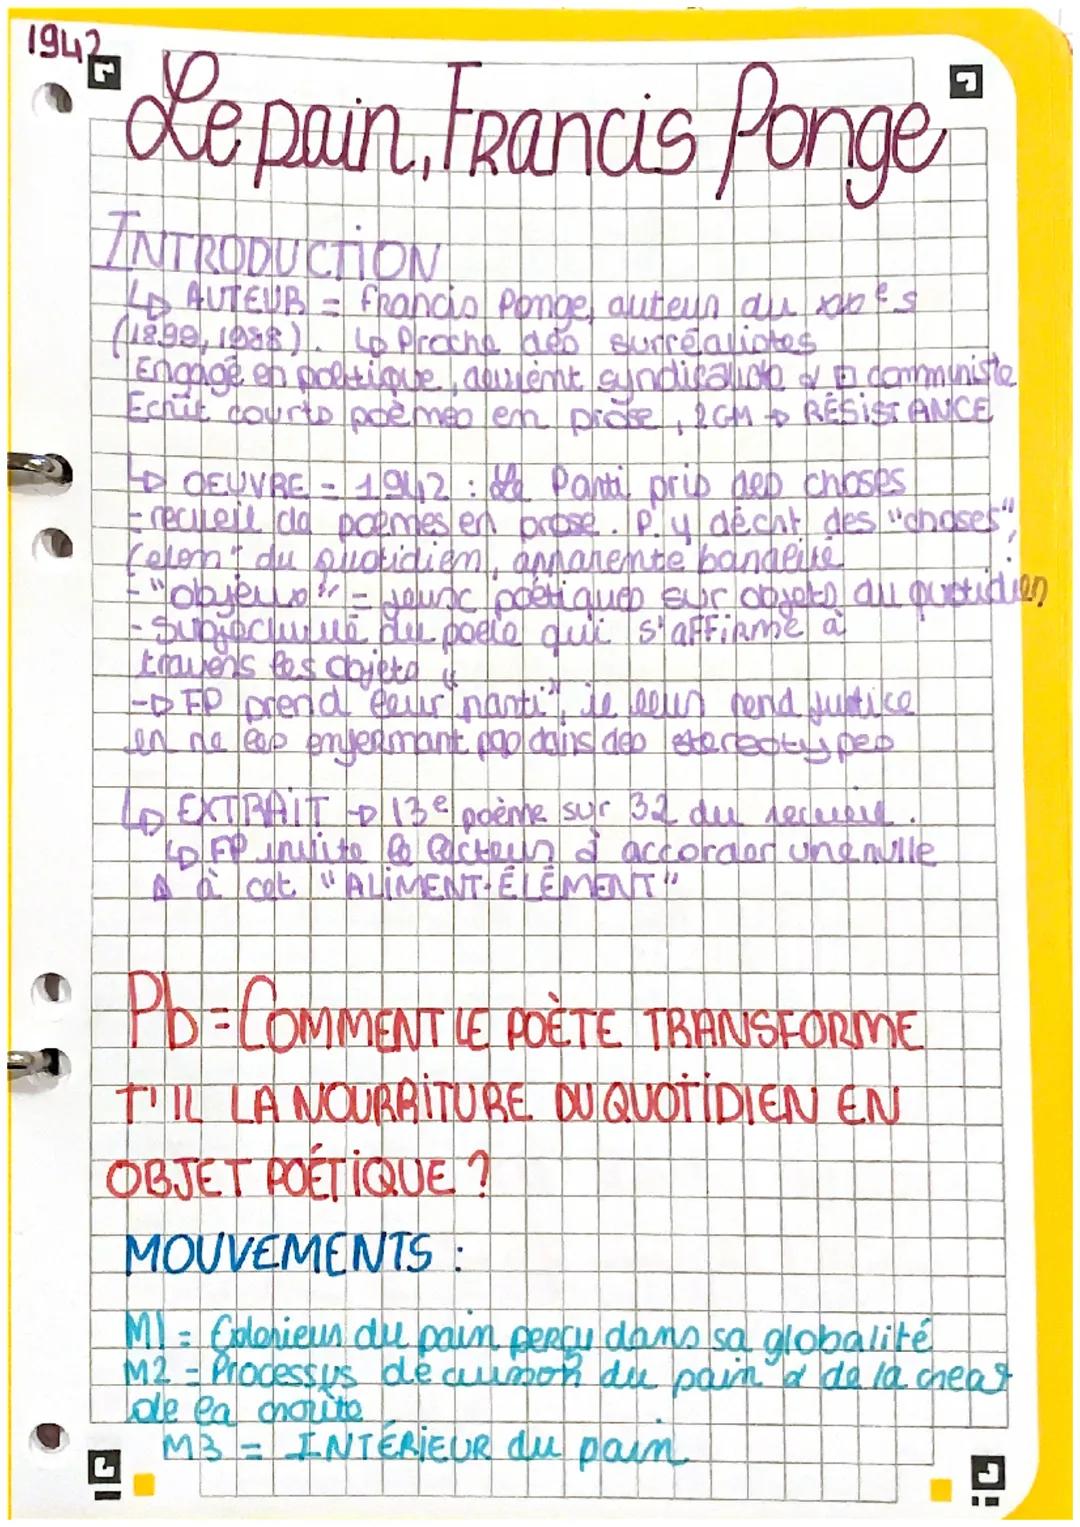 1942
Le pain, Francis Ponge
INTRODUCTION
↳ AUTEUR = Francis Ponge, auteur du XXe s
(1899, 1988). ↳ Proche des surréalistes
Engagé en politique, devient syndicaliste & communiste
Ecrit courts poèmes en prose, 2GM → RÉSISTANCE
↳ OEUVRE = 1942 : Le Parti pris des choses
- recueil de poèmes en prose. P. y décrit des "choses",
(élem" du quotidien, apparente banalité
- "objeux" = jeux poétiques sur objets du quotidien
- Subjectivité du poète qui s'affirme à
travers les objets
→ FP prend leur "parti", il leur rend justice
en ne les enfermant pas dans des stéréotypes
↳ EXTRAIT → 13e poème sur 32 du recueil.
↳ FP invite le lecteur à accorder une
à cet "ALIMENT-ÉLÉMENT"
Pb = COMMENT LE POÈTE TRANSFORME
T'IL LA NOURRITURE DU QUOTIDIEN EN
OBJET POÉTIQUE ?
MOUVEMENTS :
M1 = du pain perçu dans sa globalité
M2 = Processus de cuisson du pain & de la creat°
de la croûte
M3 = INTÉRIEUR du pain